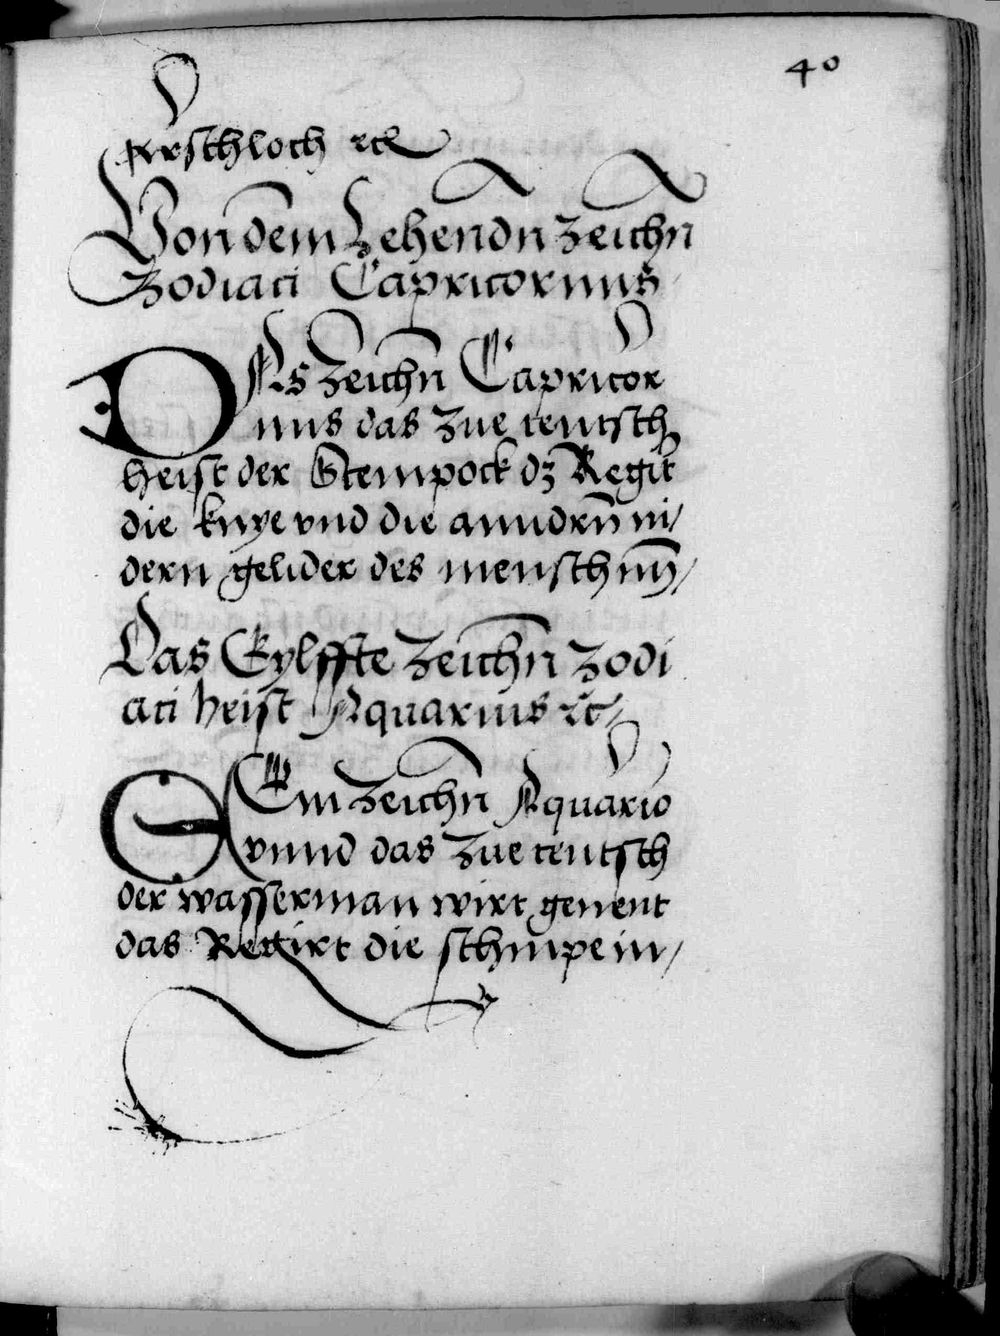 40
Arschloch ꝛc
Von dem Zehendn zeichn
Zodiaci Capricornus
DAs zeichn Capricor
nus das zue teutsch
heist der Stempock dz Regirt
die knye vnd die anndrn ni/
dern gelider des menschnn/
Das Eylffte zeichn zodi
aci heist Aquarius ꝛc
Ein zeichn Aquario
vnnd das zue teutsch
der wasserman wirt genent
das Regirt die schinpein/